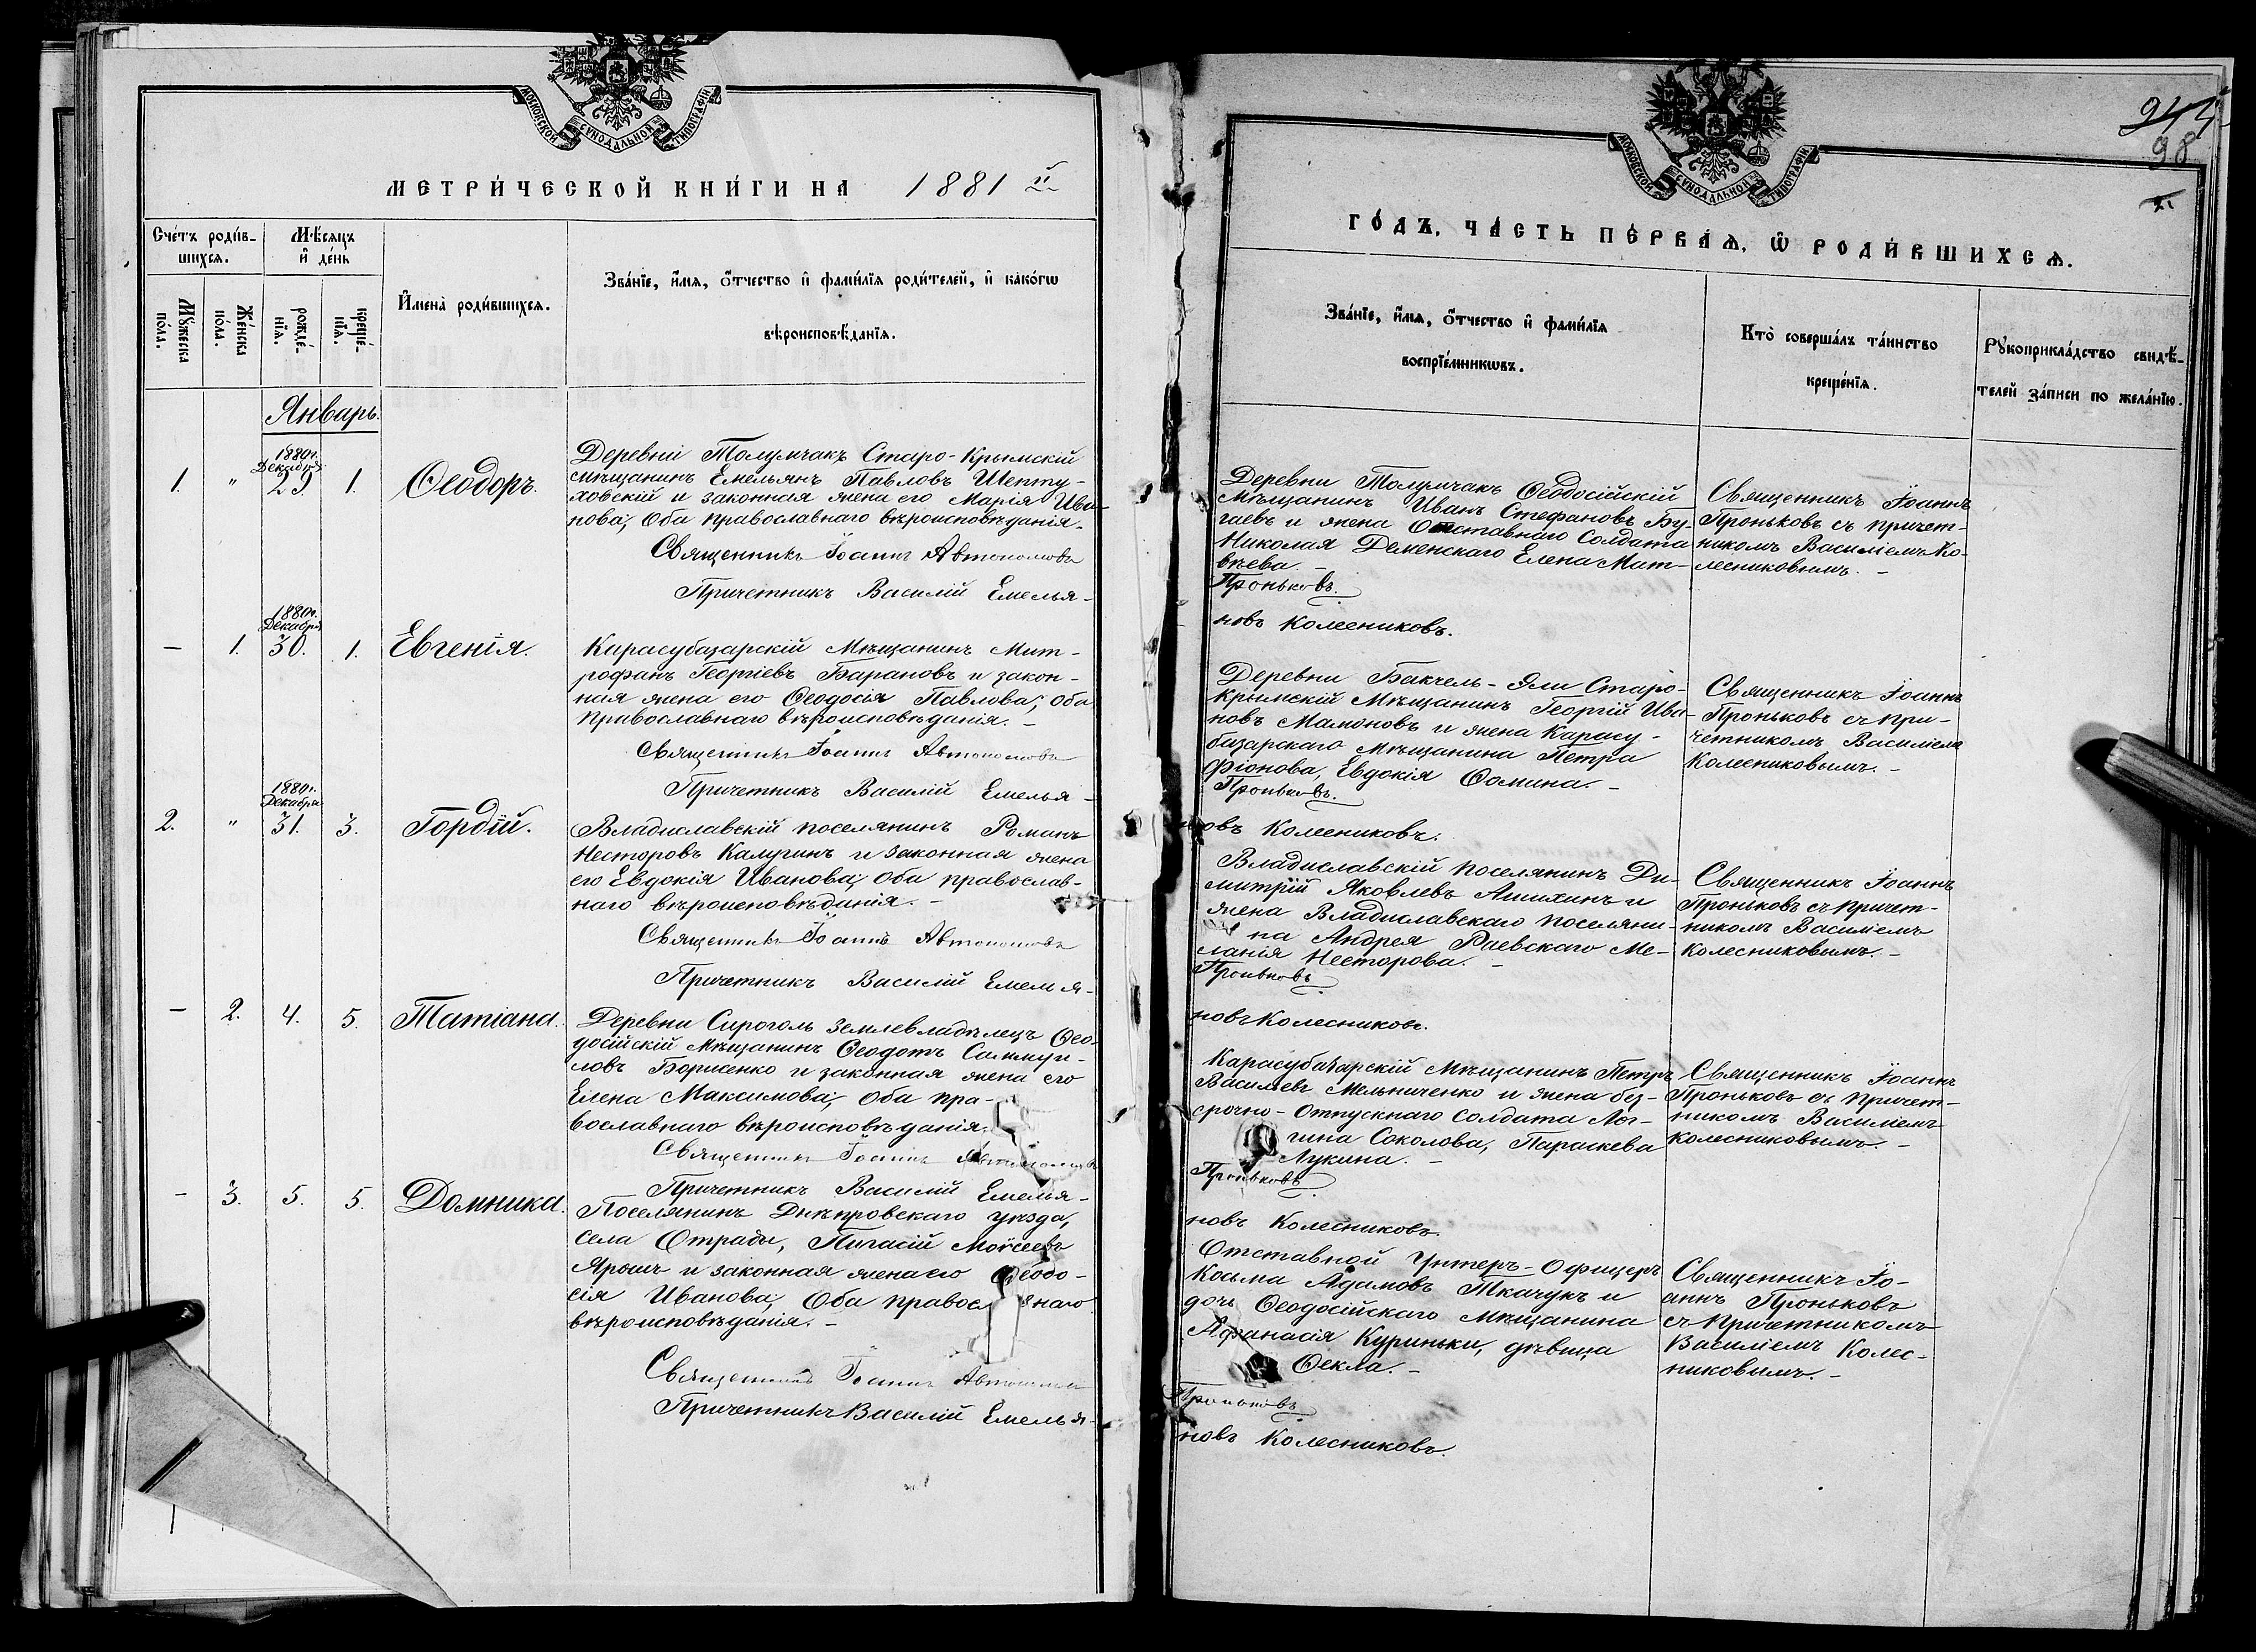 МОСКОВСКОЙ СУНОДАЛЬНОЙ ТИПОГРАФІИ
МЕТРИ́ЧЕСКОЙ КНИ́ГИ НА 1881 й
Сче́тъ роди́в-
шихсѧ.
Мѣ́сѧцъ
и҆ де́нь
Мꙋ́жеска
по́ла.
Же́нска
по́ла.
рожде́-
нїѧ.
креще́-
нїѧ.
И҆мена̀ роди́вшихсѧ.
Зва́нїе, и҆́мѧ, ѻ҆́тчество и҆ фами́лїѧ роди́телей, и҆ како́гѡ
вѣроисповѣ́данїѧ.
Январь.
1. " 1880 г. Декабря 29. 1. Ѳеодоръ.
Деревни Толумчакъ Старо-Крымскій
мѣщанинъ Емельянъ Павловъ Шепту-
ховскій и законная жена его Марія Ива-
нова, Оба православнаго вѣроисповѣданія.
Священникъ Іоаннъ Автономовъ
Причетникъ Василій Емелья-
— 1. 1880 г. Декабря 30. 1. Евгенія.
Карасубазарскій Мѣщанинъ Мит-
рофанъ Георгіевъ Барановъ и закон-
ная жена его Ѳеодосія Павлова; Оба
Православнаго вѣроисповѣданія. —
Священникъ Іоаннъ Автономовъ
Причетникъ Василій Емелья-
2. " 1880 г. Декабря 31. 3. Гордій.
Владиславскій поселянинъ Романъ
Несторовъ Калугинъ и законная жена
его Евдокія Иванова; Оба православ-
наго вѣроисповѣданія. —
Священникъ Іоаннъ Автономовъ
Причетникъ Василій Емелья-
— 2. 4. 5. Татіана.
Деревни Сироголь землевладѣлецъ Ѳео-
досійскій Мѣщанинъ Ѳеодотъ Самуи-
ловъ Борисенко и законная жена его
Елена Максимова; Оба пра-
вославнаго вѣроисповѣданія.
Священникъ Іоаннъ Автономовъ
Причетникъ Василій Емелья-
— 3. 5. 5. Домника.
Поселянинъ Днѣпровскаго уѣзда,
села Отрады, Пигасій Моѵсеевъ
Ярошъ и законная жена его Ѳеодо-
сія Иванова; Оба правос внаго
вѣроисповѣданія. —
Священникъ Іоаннъ Автономовъ
Причетникъ Василій Емелья-
МОСКОВСКОЙ СУНОДАЛЬНОЙ ТИПОГРАФІИ
244
98
ГО́ДЪ, ЧА́СТЬ ПЕ́РВАѦ, Ѡ҆ РОДИ́ВШИХСѦ.
Зва́нїе, и҆́мѧ, ѻ҆́тчество и҆ фами́лїѧ
воспрїе́мникѡвъ.
Кто̀ соверша́лъ та́инство
креще́нїѧ.
Рꙋкоприкла́дство свидѣ́-
телей за́писи по жела́нїю.
Деревни Толумчакъ Ѳеодосійскій
Мѣщанинъ Иванъ Стефановъ Бу-
гаевъ и жена Отставнаго Солдата
Николая Деменскаго Елена Мат-
вѣева. —
Проньковъ.
Священникъ Іоаннъ
Проньковъ съ причет-
никомъ Василіемъ Ко-
лесниковымъ. —
новъ Колесниковъ.
Деревни Бакчель-Эли Старо-
крымскій Мѣщанинъ Георгій Ива-
новъ Мамоновъ и жена Карасу-
базарскаго Мѣщанина Петра
Фіонова, Евдокія Ѳомина. —
Проньковъ.
Священникъ Іоаннъ
Проньковъ съ при-
четникомъ Василіемъ
Колесниковымъ. —
новъ Колесниковъ.
Владиславскій поселянинъ Ди-
митрій Яковлевъ Анихинъ и
жена Владиславскаго поселяни-
на Андрея Раевскаго Ме-
ланія Несторова. —
Проньковъ
Священникъ Іоаннъ
Проньковъ съ причет-
никомъ Василіемъ
Колесниковымъ. —
новъ Колесниковъ.
Карасубазарскій Мѣщанинъ Петръ
Василіевъ Мельниченко и жена без-
срочно-Отпускнаго Солдата Лог-
гина Соколова, Параскева
Лукина. —
Проньковъ
Священникъ Іоаннъ
Проньковъ съ Причет-
никомъ Василіемъ
Колесниковымъ. —
новъ Колесниковъ
Отставной Унтеръ-Офицеръ
Косьма Адамовъ Ткачукъ и
дочь Ѳеодосійскаго Мѣщанина
Аѳанасія Куриньки, дѣвица
Ѳекла. —
Проньковъ
Священникъ Іо-
аннъ Проньковъ
съ Причетникомъ
Василіемъ Колес-
никовымъ. —
новъ Колесниковъ.